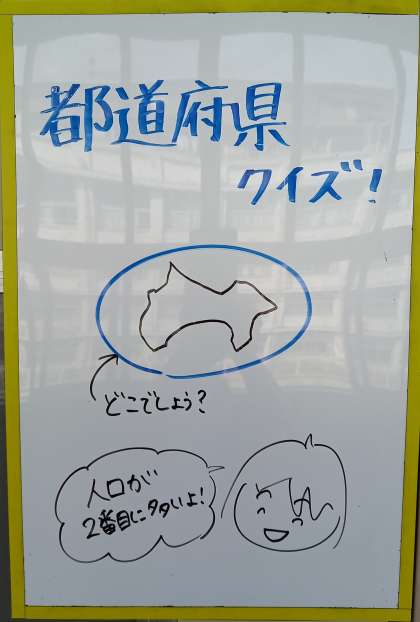 都道府県
クイズ!
どこでしょう?
人口が
2番目に多いよ!